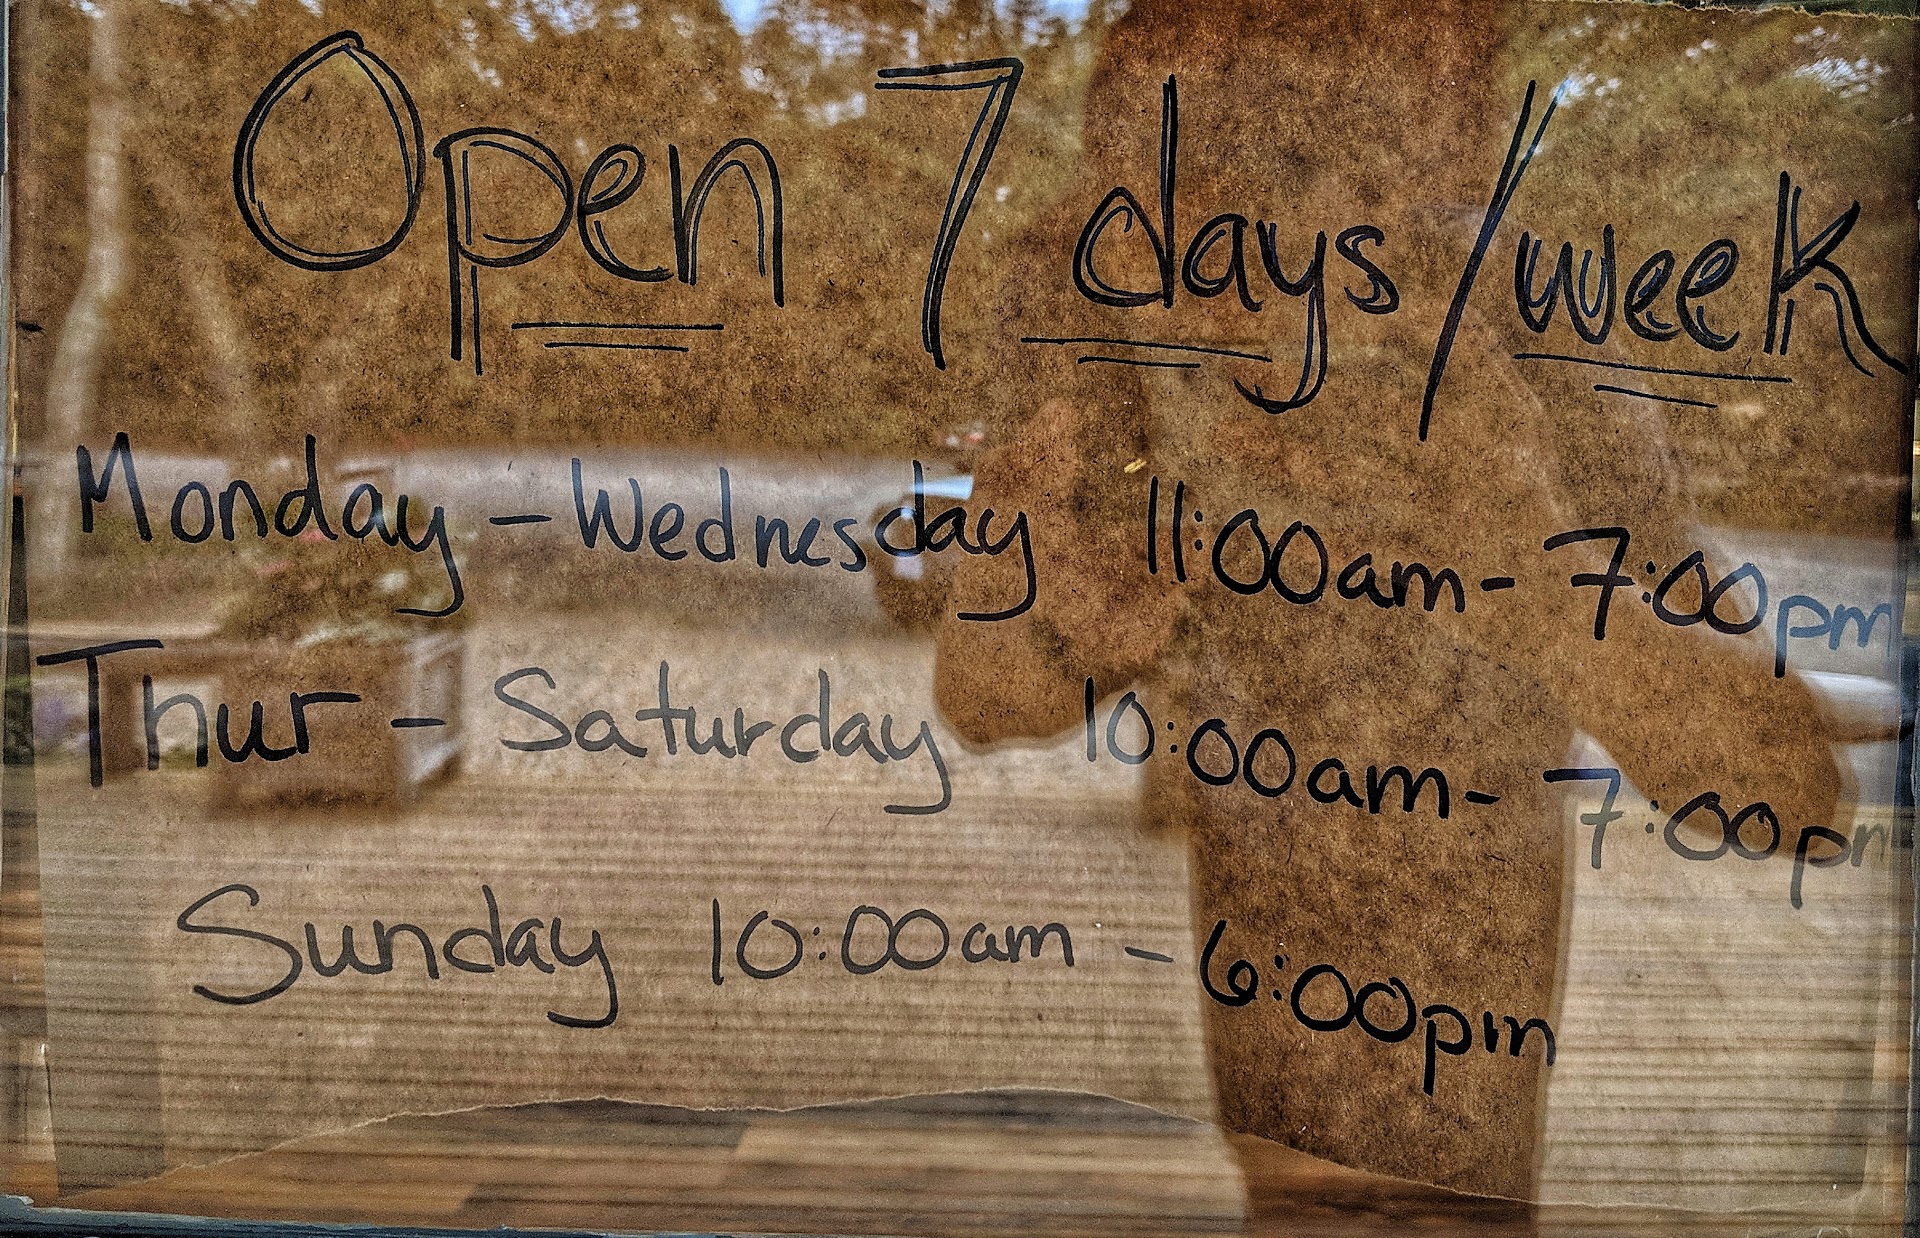 Open 7 days/week
Monday - Wednesday 11:00am - 7:00pm
Thur - Saturday 10:00am - 7:00pm
Sunday 10:00am - 6:00pm